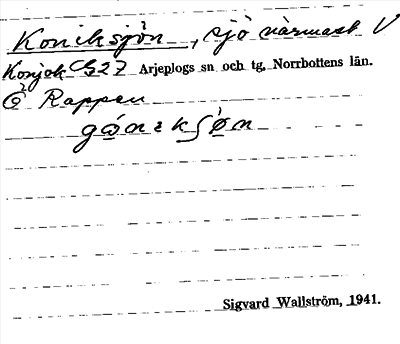 Koniksjön, sjö närmast V
Konjok G27 Arjeplogs sn och tg, Norrbottens län.
Ö Rappen
Sigvard Wallström, 1941.